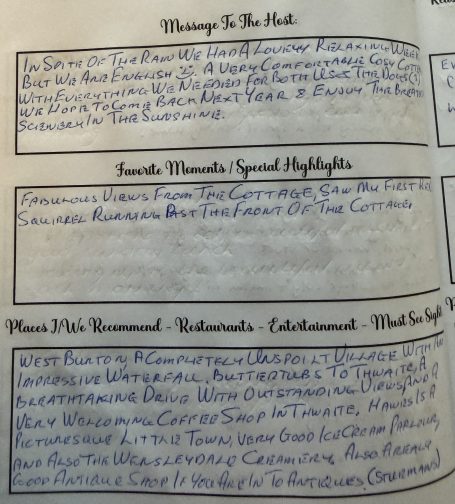 Message To The Host:
IN SPITE OF THE RAIN WE HAD A LOVELY RELAXING WEEK
BUT WE ARE ENGLISH A VERY COMFORTABLE COSY COTTA
WITH EVERYTHING WE NEEDED FOR BOTH US & THE DOGS (3)
WE HOPE TO COME BACK NEXT YEAR & ENJOY THE BREATH
SCIENERY IN THE SUNSHINE.
Favorite Moments / Special Highlights
FABULOUS VIEWS FROM THE COTTAGE, SAW MY FIRST RED
SQUIRREL RUNNING PAST THE FRONT OF THE COTTAGE,
Places I/We Recommend - Restaurants - Entertainment - Must See Sigh
WEST BURTON, A COMPLETELY UNSPOILT VILLAGE WITH
IMPRESSIVE WATERFALL, BUTTERTUBS TO THWAITE, A
BREATHTAKING DRIVE WITH OUTSTANDING VIEWS AND A
VERY WELCOMING COFFEE SHOP IN THWAITE. HAWES IS A
PICTURESQUE LITTLE TOWN, VERY GOOD ICE CREAM PARLOUR,
AND ALSO THE WENSLEYDALE CREAMERY. ALSO A REALLY
GOOD ANTIQUE SHOP IF YOU ARE IN TO ANTIQUES, (STURMANS)